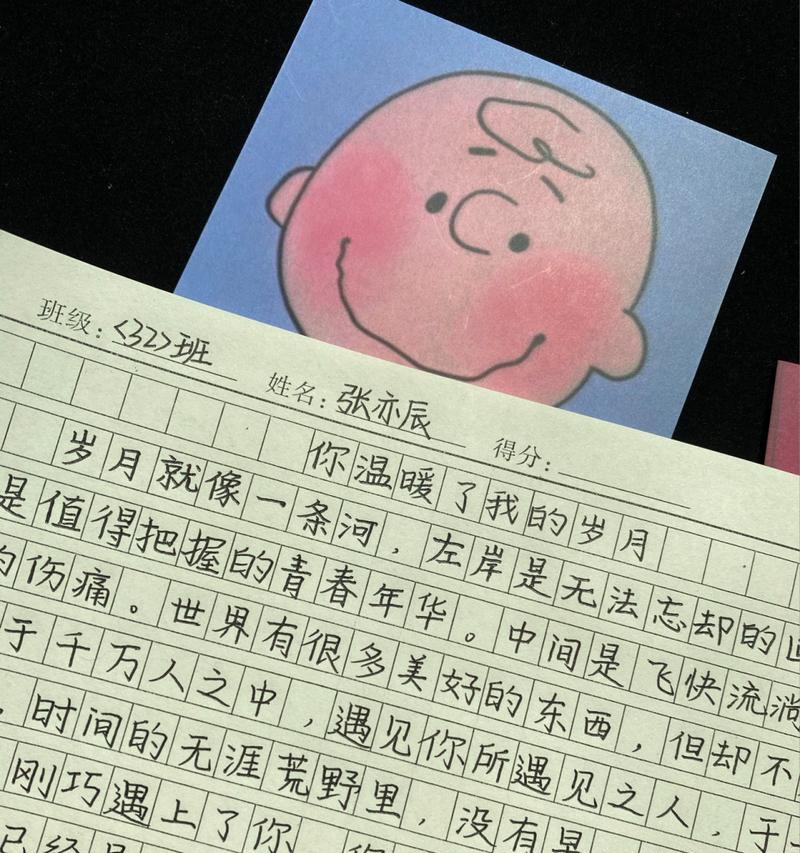 班级:<32>班 姓名:张亦辰 得分:
你温暖了我的岁月
岁月就像一条河,左岸是无法忘却的
是值得把握的青春年华。中间是飞快流淌
伤痛。世界有很多美好的东西,但却不
于千万人之中,遇见你所遇见之人,于
,时间的无涯荒野里,没有早
刚巧遇上了你
已经是